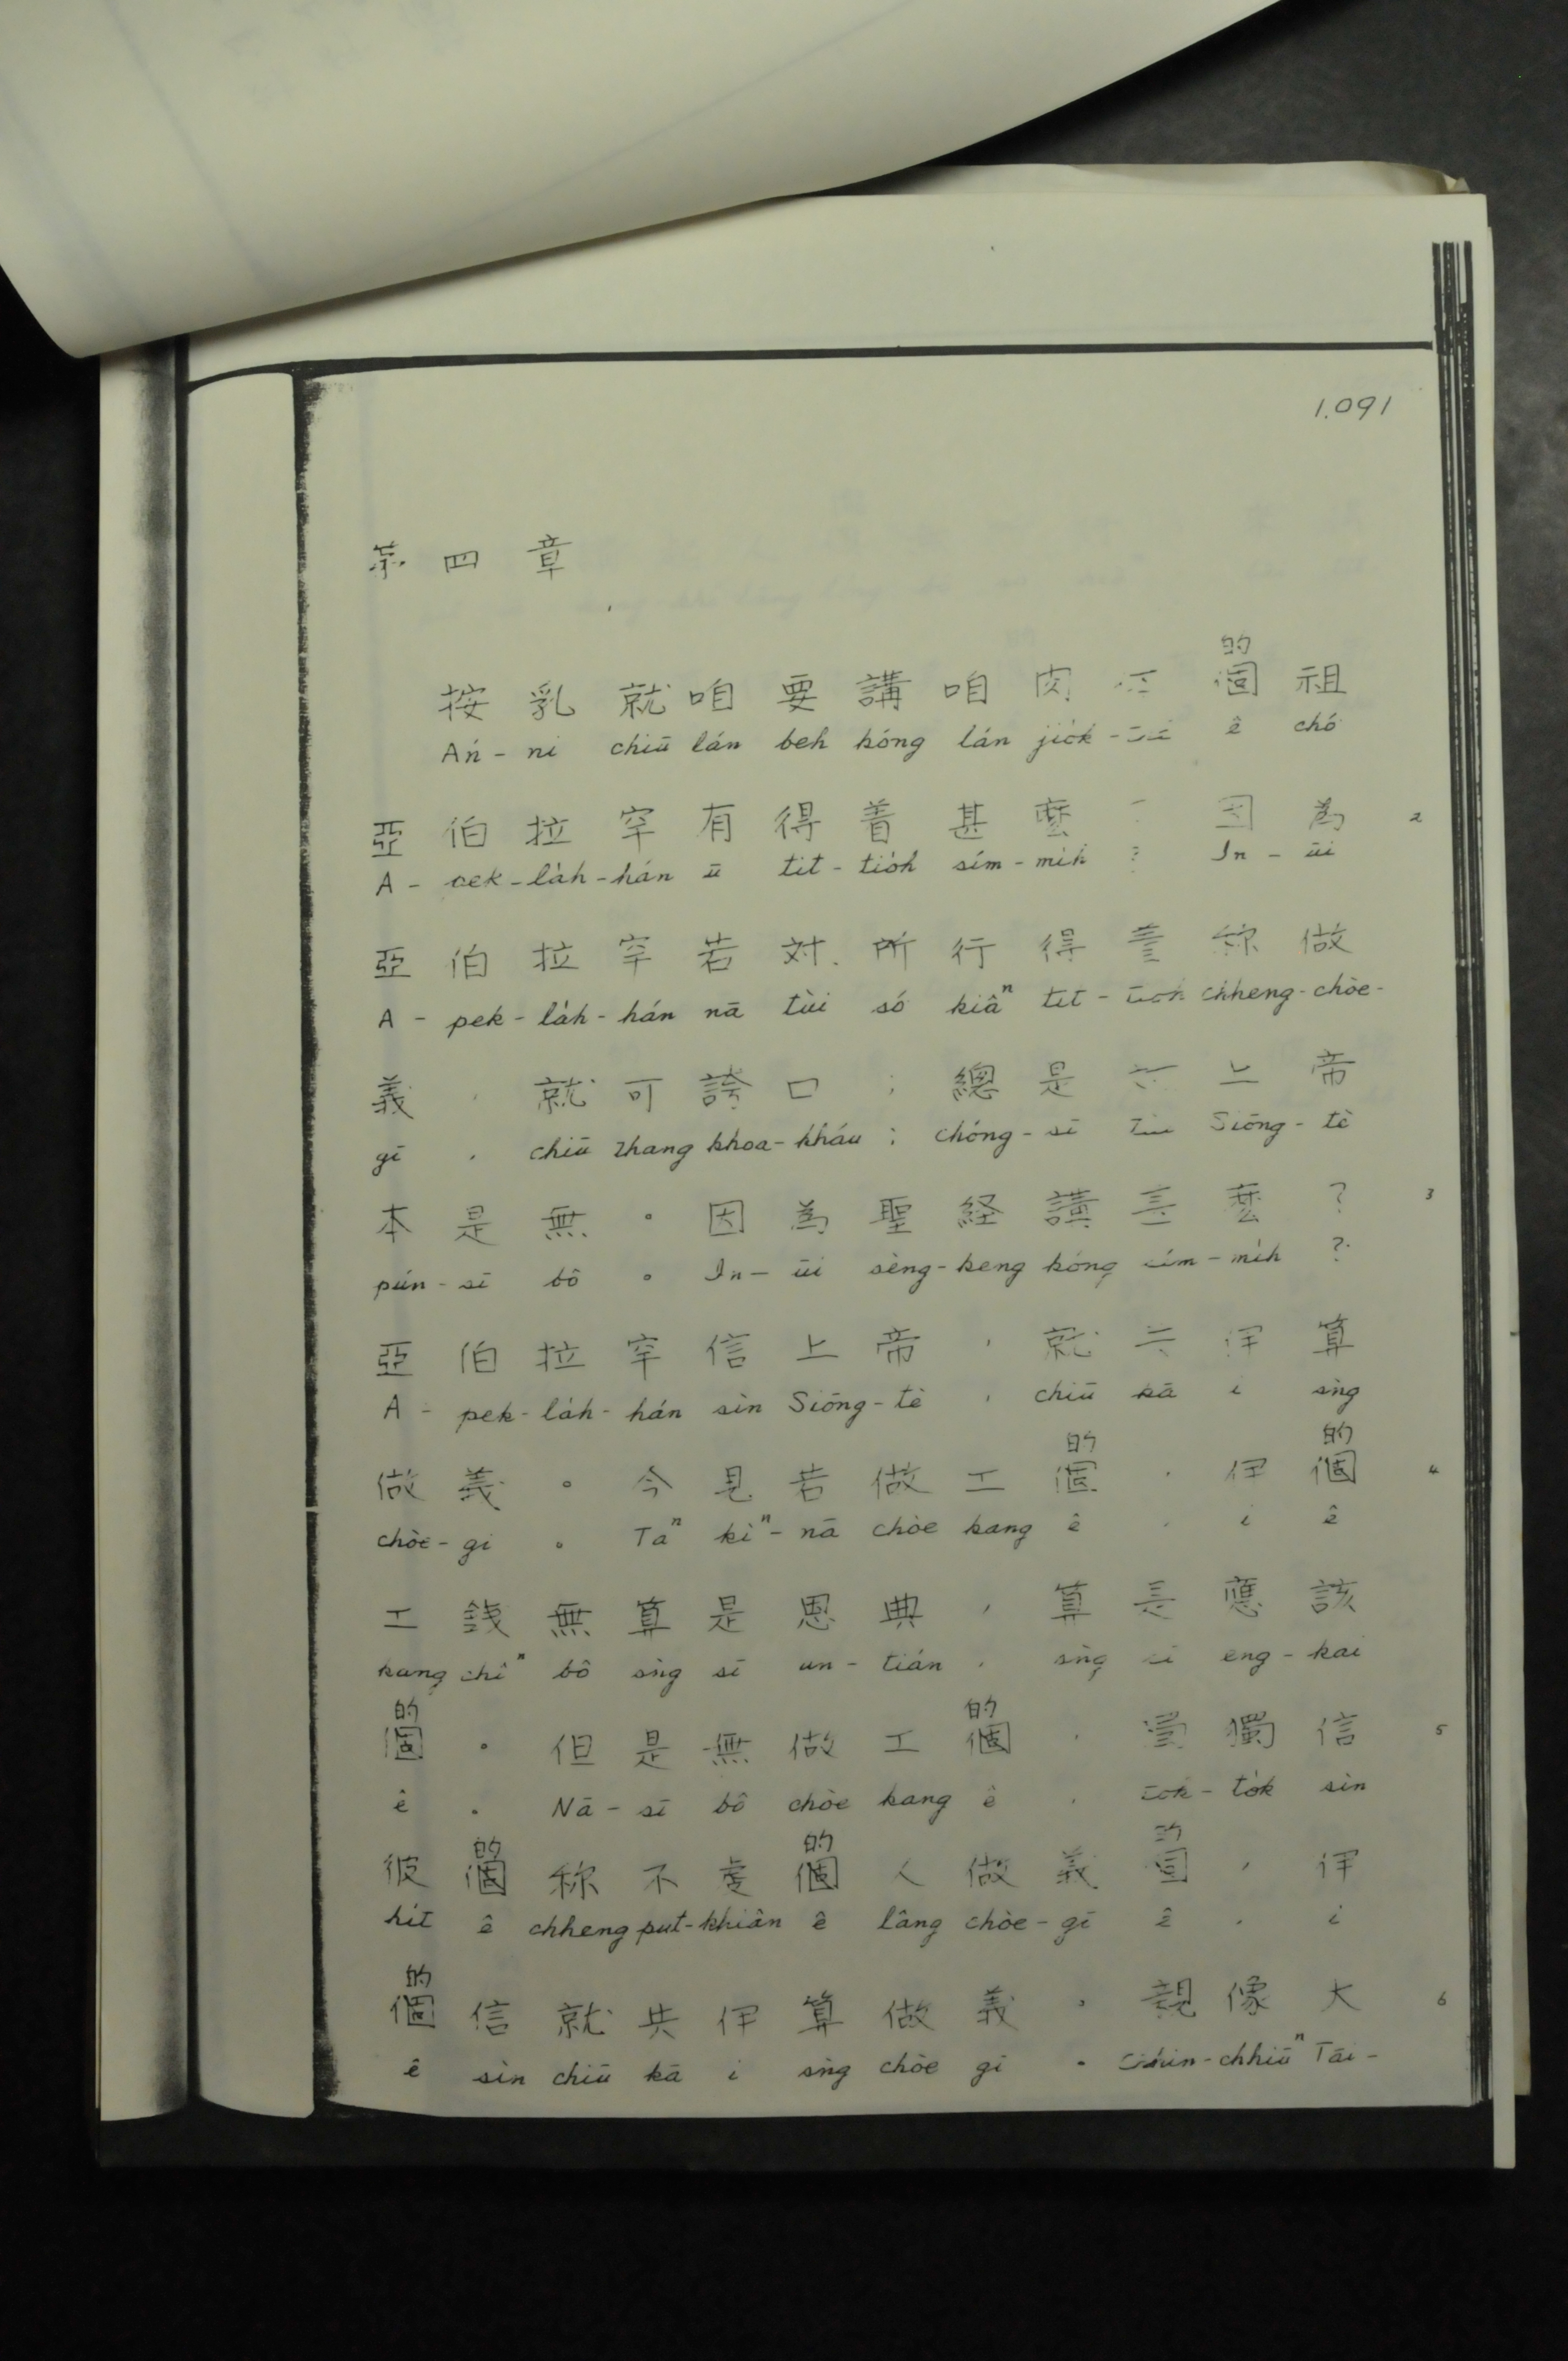 1.091
第 四 章
的
按 乳 就 咱 要 講 咱 肉 個 祖
Án-ni chiū lán beh kóng lán jio̍k- ê chó
亞 伯 拉 罕 有 得 着 甚 麼 因 為 2
A- pek-la̍h-hán ū tit-tio̍h sím-mih ? In-ūi
亞 伯 拉 罕 若 対 所 行 得 着 称 做
A-pek-la̍h-hán nā tùi só kiâⁿ tit-tio̍h chheng-chòe-
義 , 就 可 誇 口 ; 總 是 上 帝
gī , chiū thang khoa-kháu ; chóng-sī Siōng-tè
本 是 無 。 因 為 聖 経 講 甚 麼 ? 3
pún-sī bô 。 In-ūi sèng-keng kóng sím-mih ?
亞 伯 拉 罕 信 上 帝 , 就 共 伊 算
A-pek-la̍h-hán sìn Siōng-tè , chiū kā i sǹg
的 的
做 義 。 今 見 若 做 工 個 , 伊 個 4
chòe-gī 。 Taⁿ kìⁿ-nā chòe kang ê , i ê
工 錢 無 算 是 恩 典 , 算 是 應 該
kang chîⁿ bô sǹg sī un-tián , sǹg sī eng-kai
的 的
個 。 但 是 無 做 工 個 , 獨 信 5
ê 。 Nā-sī bô chòe kang ê , to̍k-to̍k sìn
的 的 的
彼 個 称 不 虔 個 人 做 義 個 , 伊
hit ê chheng put-khiân ê lâng chòe-gī ê , i
的
個 信 就 共 伊 算 做 義 。 親 像 大 6
ê sìn chiū kā i sǹg chòe gī 。 Chhin-chhiūⁿ Tāi-